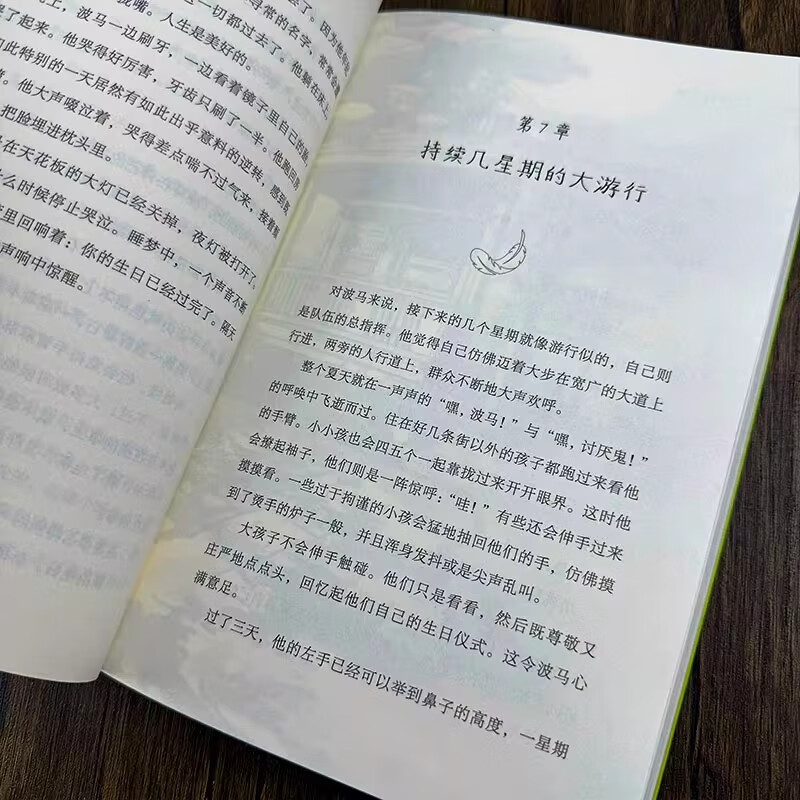 寻常的名字，常常会被
一切都过去了。他躺在床上
上，波马一边刷牙，一边看着镜子里自己的脸
哭了起来。他哭得好厉害，牙齿只刷了一半。他跑回房
如此特别的一天居然有如此出乎意料的逆转，感到既
他大声嚎泣着，哭得差点喘不过气来，接着翻
把脸埋进枕头里。
在天花板的大灯已经关掉，夜灯被打开了。
么时候停止哭泣。睡梦中，一个声音不断
里回响着：你的生日已经过完了。隔天
声响中惊醒。
第7章
持续几星期的大游行
对波马来说，接下来的几个星期就像游行似的，自己则
是队伍的总指挥。他觉得自己仿佛迈着大步在宽广的大道上
行进，两旁的人行道上，群众不断地大声欢呼。
整个夏天就在一声声的“嘿，波马！”与“嘿，讨厌鬼！”
的呼唤中飞逝而过。住在好几条街以外的孩子都跑过来看他
的手臂。小小孩也会四五个一起靠拢过来开开眼界。这时他
会撩起袖子，他们则是一阵惊呼：“哇！”有些还会伸手过来
摸摸看。一些过于拘谨的小孩会猛地抽回他们的手，仿佛摸
到了烫手的炉子一般，并且浑身发抖或是尖声乱叫。
大孩子不会伸手触碰。他们只是看看，然后既尊敬又
庄严地点点头，回忆起他们自己的生日仪式。这令波马心
满意足。
过了三天，他的左手已经可以举到鼻子的高度，一星期